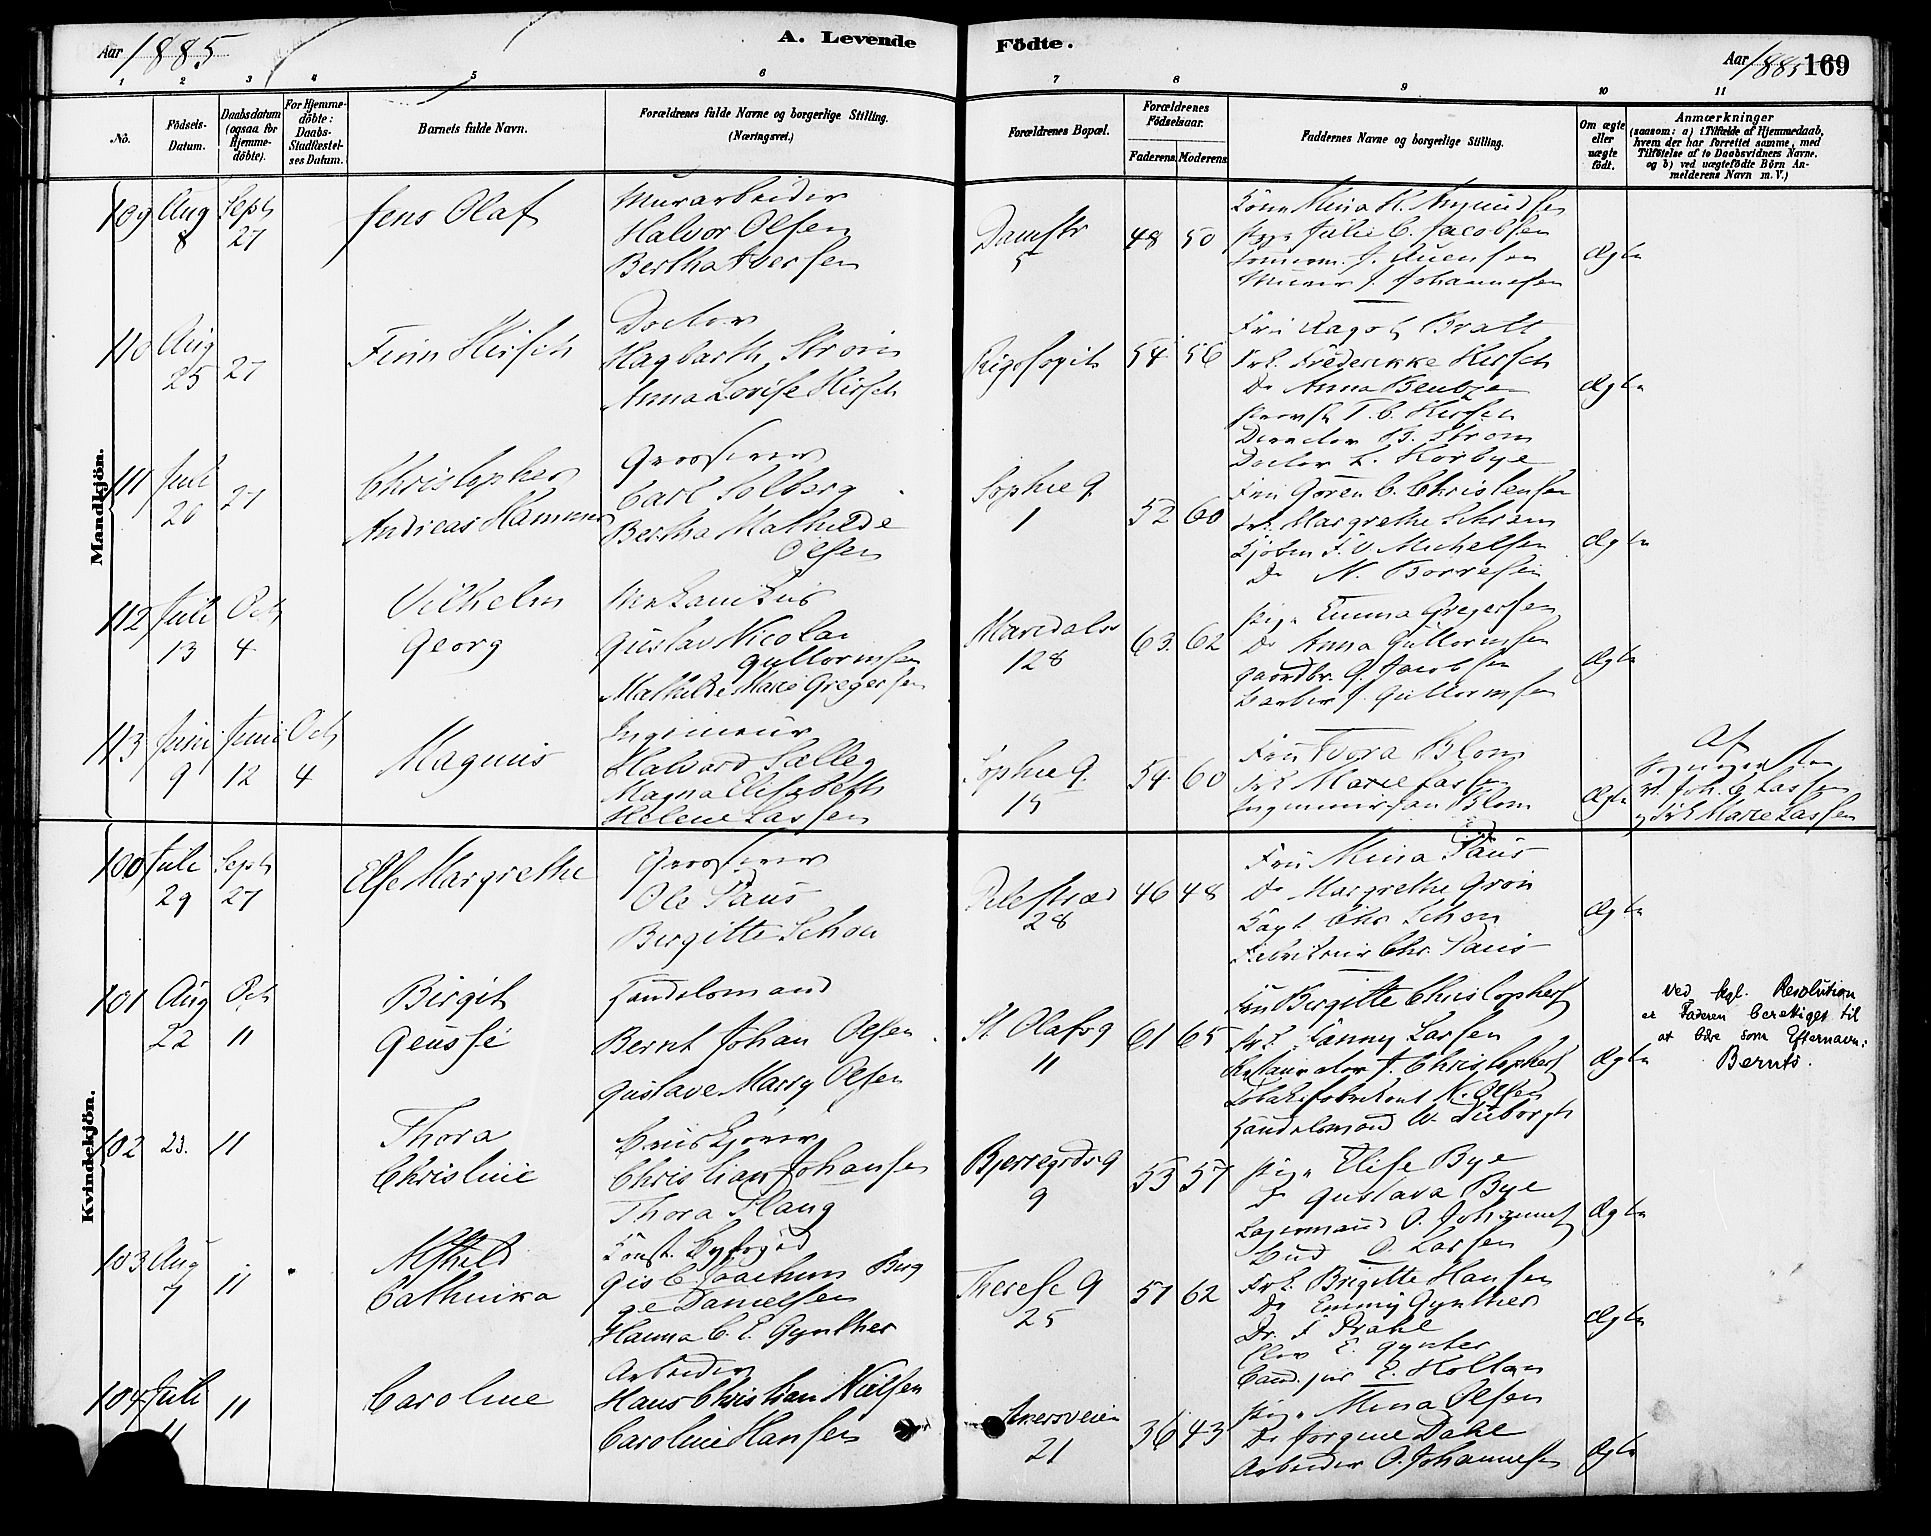 Aar 1885
A. Levende
Födte.
Aar 1885
169
1 2 3 4 5 6 7 8 9 10 11
No.
Födsels-Datum.
Daabsdatum (ogsaa for Hjemme-döbte).
For Hjemme-döbte: Daabs-Stadfæstel-ses Datum.
Barnets fulde Navn.
Forældrenes fulde Navne og borgerlige Stilling.
(Næringsvei.)
Forældrenes Bopæl.
Forældrenes Födselsaar.
Faderens. Moderens.
Faddernes Navne og borgerlige Stilling.
Om ægte eller uægte födt.
Anmærkninger
(saasom: a) i Tilfælde af Hjemmedaab,
hvem der har forrettet samme, med
Tilföielse af to Daabsvidners Navne.
og b) ved uægtefödte Börn An-
melderens Navn m. V.)
Mandkjön.
109 Aug 8 Sept 27
Jens Olaf
Murarbeider
Halvor Olsen
Bertha Iversen
Damstr 5
48 50
Kone Mina K. Amundsen
Pige Julie C. Jacobsen
J.
Murer J. Johannesen
Ægte
110 Aug 25 27
Finn Hirsch
Doctor
Hagbarth Ström
Anna Lovise Hirsch
Rigshospit
54 56
Fru Ragnh Bratt
Frk. Frederikke Hirsch
Do Anna Bentzen
T. C. Hirsch
Director B. Ström
Doctor L. Korbye
Ægte
111 Juli 20 27
Christopher
Andreas Hammer
Grosserer
Carl Solberg
Bertha Mathilde
Olsen
Sophie G 1
52 60
Fru Gören C. Christensen
Frk. Margrethe Schram
Kjöbm F. V. Michelsen
Do N. Borresen
Ægte
112 Juli 13 Oct 4
Vilhelm
Georg
Mekanikus
Gustav Nicolai
Gullormsen
Mathilde Marie Gregersen
Maridalsv 128
63. 62
Pige Emma Gregersen
Do Anna Gullormsen
Gaardbr. G. Jacobsen
Barber J. Gullormsen
Ægte
113 Juni 9 Juni 12 Oct 4
Magnus
Ingenieur
Halvard Sælleg
Magna Elisabeth
Helene Lassen
Sophie G. 15
54. 60
Fru Thora Blom
Frk Marie Lassen
Ingenieur Jan Blom
Ægte
Af
Sognepresten
Joh. C Lassen
og Frk Marie Lassen
Kvindekjön.
100 Juli 29 Sept 27
Else Margrethe
Grosserer
Ole Paus
Birgitte Schou
Pilestræd 28
46 48
Fru Mina Paus
Do Margrethe Grön
Kapt. Chr. Schou
Fabrikeier Chr. Paus
Ægte
101 Aug 22 Oct 11
Birgit
Geussé
Handelsmand
Bernt Johan Olsen
Gustave Marry Olsen
St Olafs g 11
61 65
Fru Birgitte Christophers
Frk Fanny Lassen
Restauratör J. Christophers
Tobaksfabrikant N. Olsen
Handelsmand W. Tuborgh
Ægte
Ved kgl. Resolution
er Faderen berettiget til
at bære som Efternavn:
Bernts.
102 23. 11
Thora
Christine
Christian Johansen
Thora Haug
Bjerregrds G 9
53 57
Pige Elise Bye
Do Gustava Bye
Lagermand O. Johannes
Bud O. Larsen
Ægte
103 Aug 7 11
Alfhild
Cathinka
Konst. Byfoged
Gis C. Joachim Birg
ge Danielsen
Hanna C. E. Gynther
Therese G 25
57 62
Frk. Brigitte Hansen
Do Emmy Gynther
Dr. F Prahl
Elev E. Gynter
Cand. jur E. Holtan
Ægte
104 Juli 11 11
Caroline
Arbeider
Hans Christian Nielsen
Caroline Hansen
Akersveien 21
36 43
Pige Mina Olsen
Do Jorgine Dahl
Arbeider O. Johannesen
Ægte